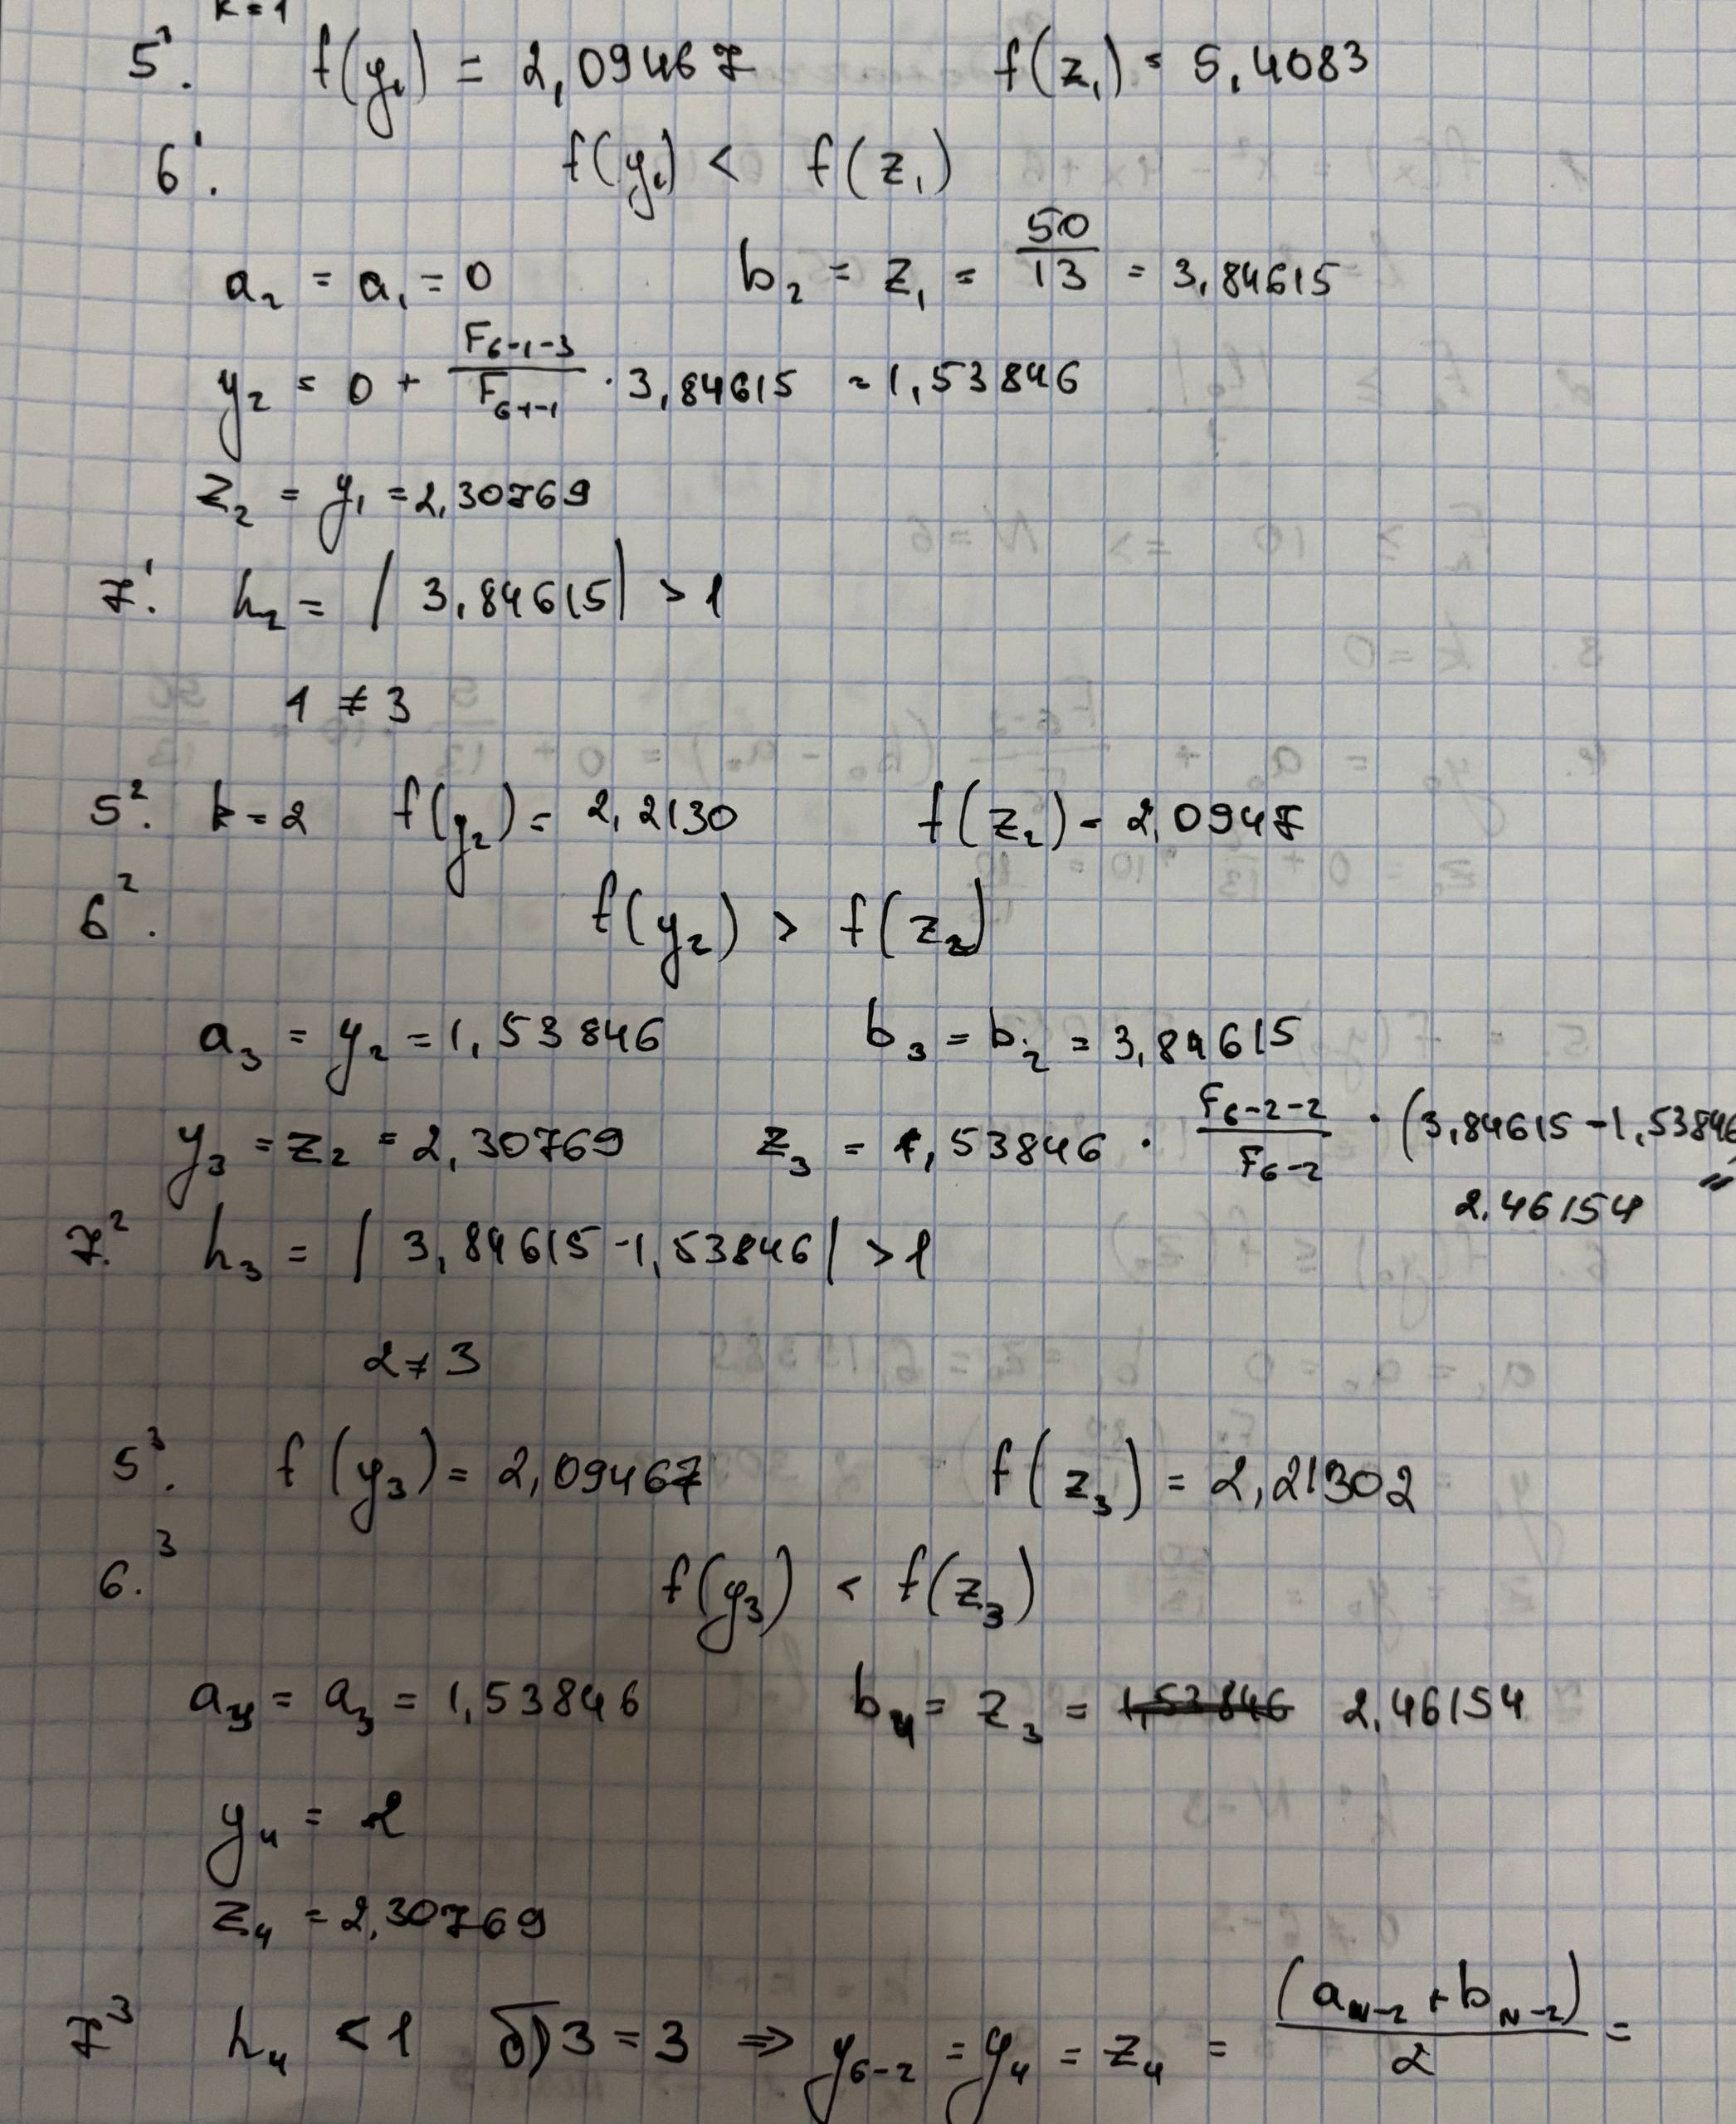 k = 1
5¹. f(y₁) = 2,09467 f(z₁) = 5,4083
6¹. f(y₁) < f(z₁)
a₂ = a₁ = 0 b₂ = z₁ = 50/13 = 3,84615
y₂ = 0 + F₆₋₁₋₃/F₆₋₁ · 3,84615 = 1,53846
z₂ = y₁ = 2,30769
7¹. h₂ = | 3,84615| > 1
1 ≠ 3
5². k = 2 f(y₂) = 2,2130 f(z₂) = 2,0947
6². f(y₂) > f(z₂)
a₃ = y₂ = 1,53846 b₃ = b₂ = 3,84615
y₃ = z₂ = 2,30769 z₃ = 1,53846 · F₆₋₂₋₂/F₆₋₂ · (3,84615 - 1,53846
= 2.46154
7.² h₃ = | 3,84615 - 1,53846 | > 1
2 ≠ 3
5³. f(y₃) = 2,09467 f(z₃) = 2,21302
6.³ f(y₃) < f(z₃)
a₄ = a₃ = 1,53846 b₄ = z₃ = 1,53846 2,46154
y₄ = 2
z₄ = 2,30769
7³ h₄ < 1 б) 3 = 3 ⇒ y₆₋₂ = y₄ = z₄ = (a_{N-2} + b_{N-2})/2 =